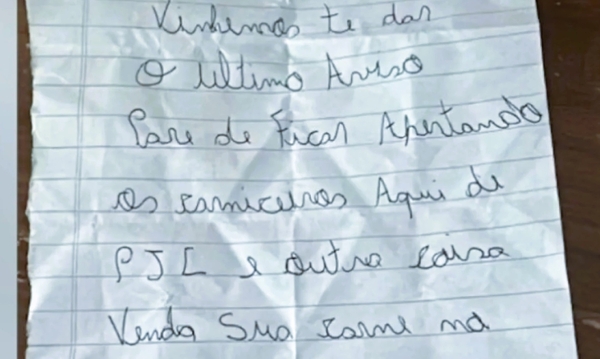 Vinhemos te dar
O ultimo Aviso
Pare de Ficar Apertando
os carniceiros Aqui de
PJL e outra coisa
Venda Sua carne na